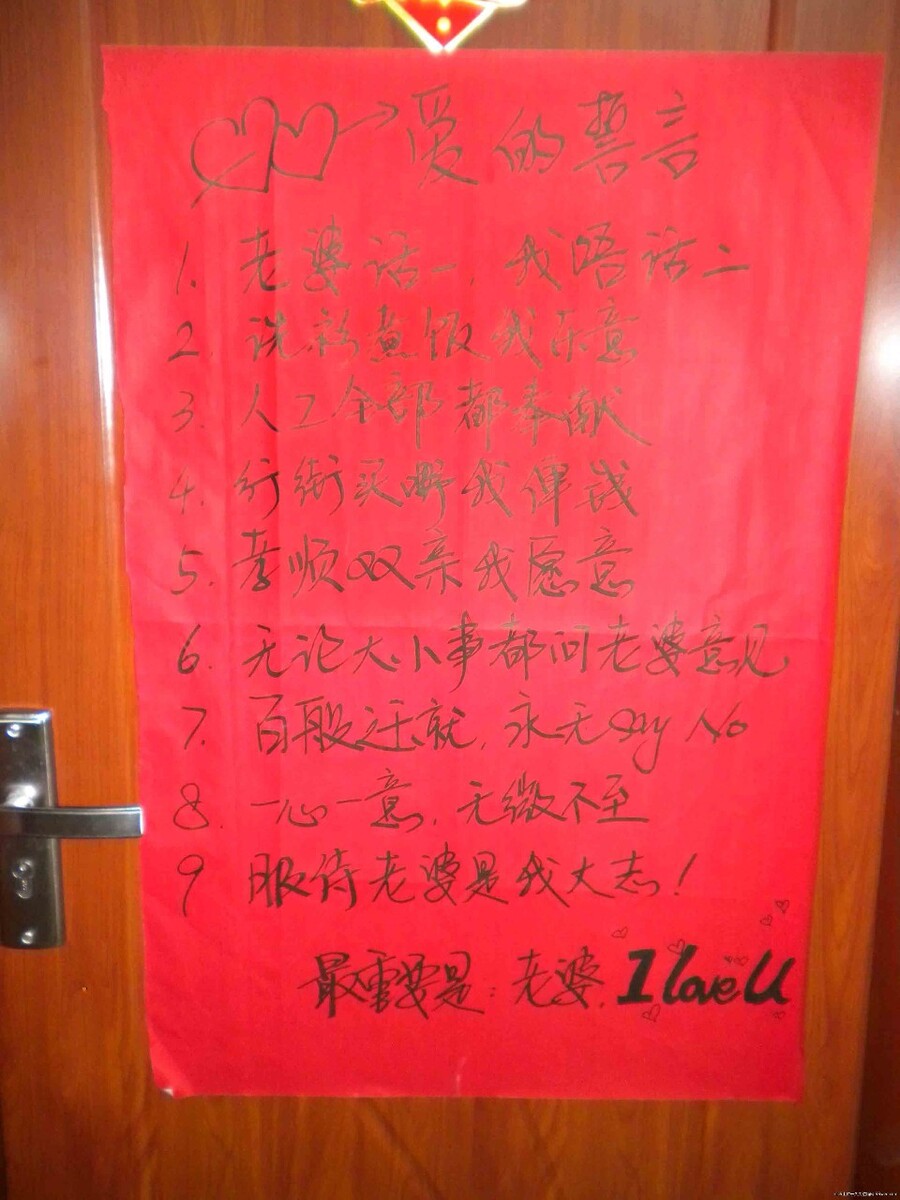 爱的誓言
1. 老婆话一，我唔话二
2. 洗衫煮饭我乐意
3. 人工全部都奉献
4. 行街买嘢我俾钱
5. 孝顺双亲我愿意
6. 无论大小事都问老婆意见
7. 百般迁就，永无Say No
8. 一心一意，无微不至
9 服侍老婆是我大志！
最重要是：老婆，I love U